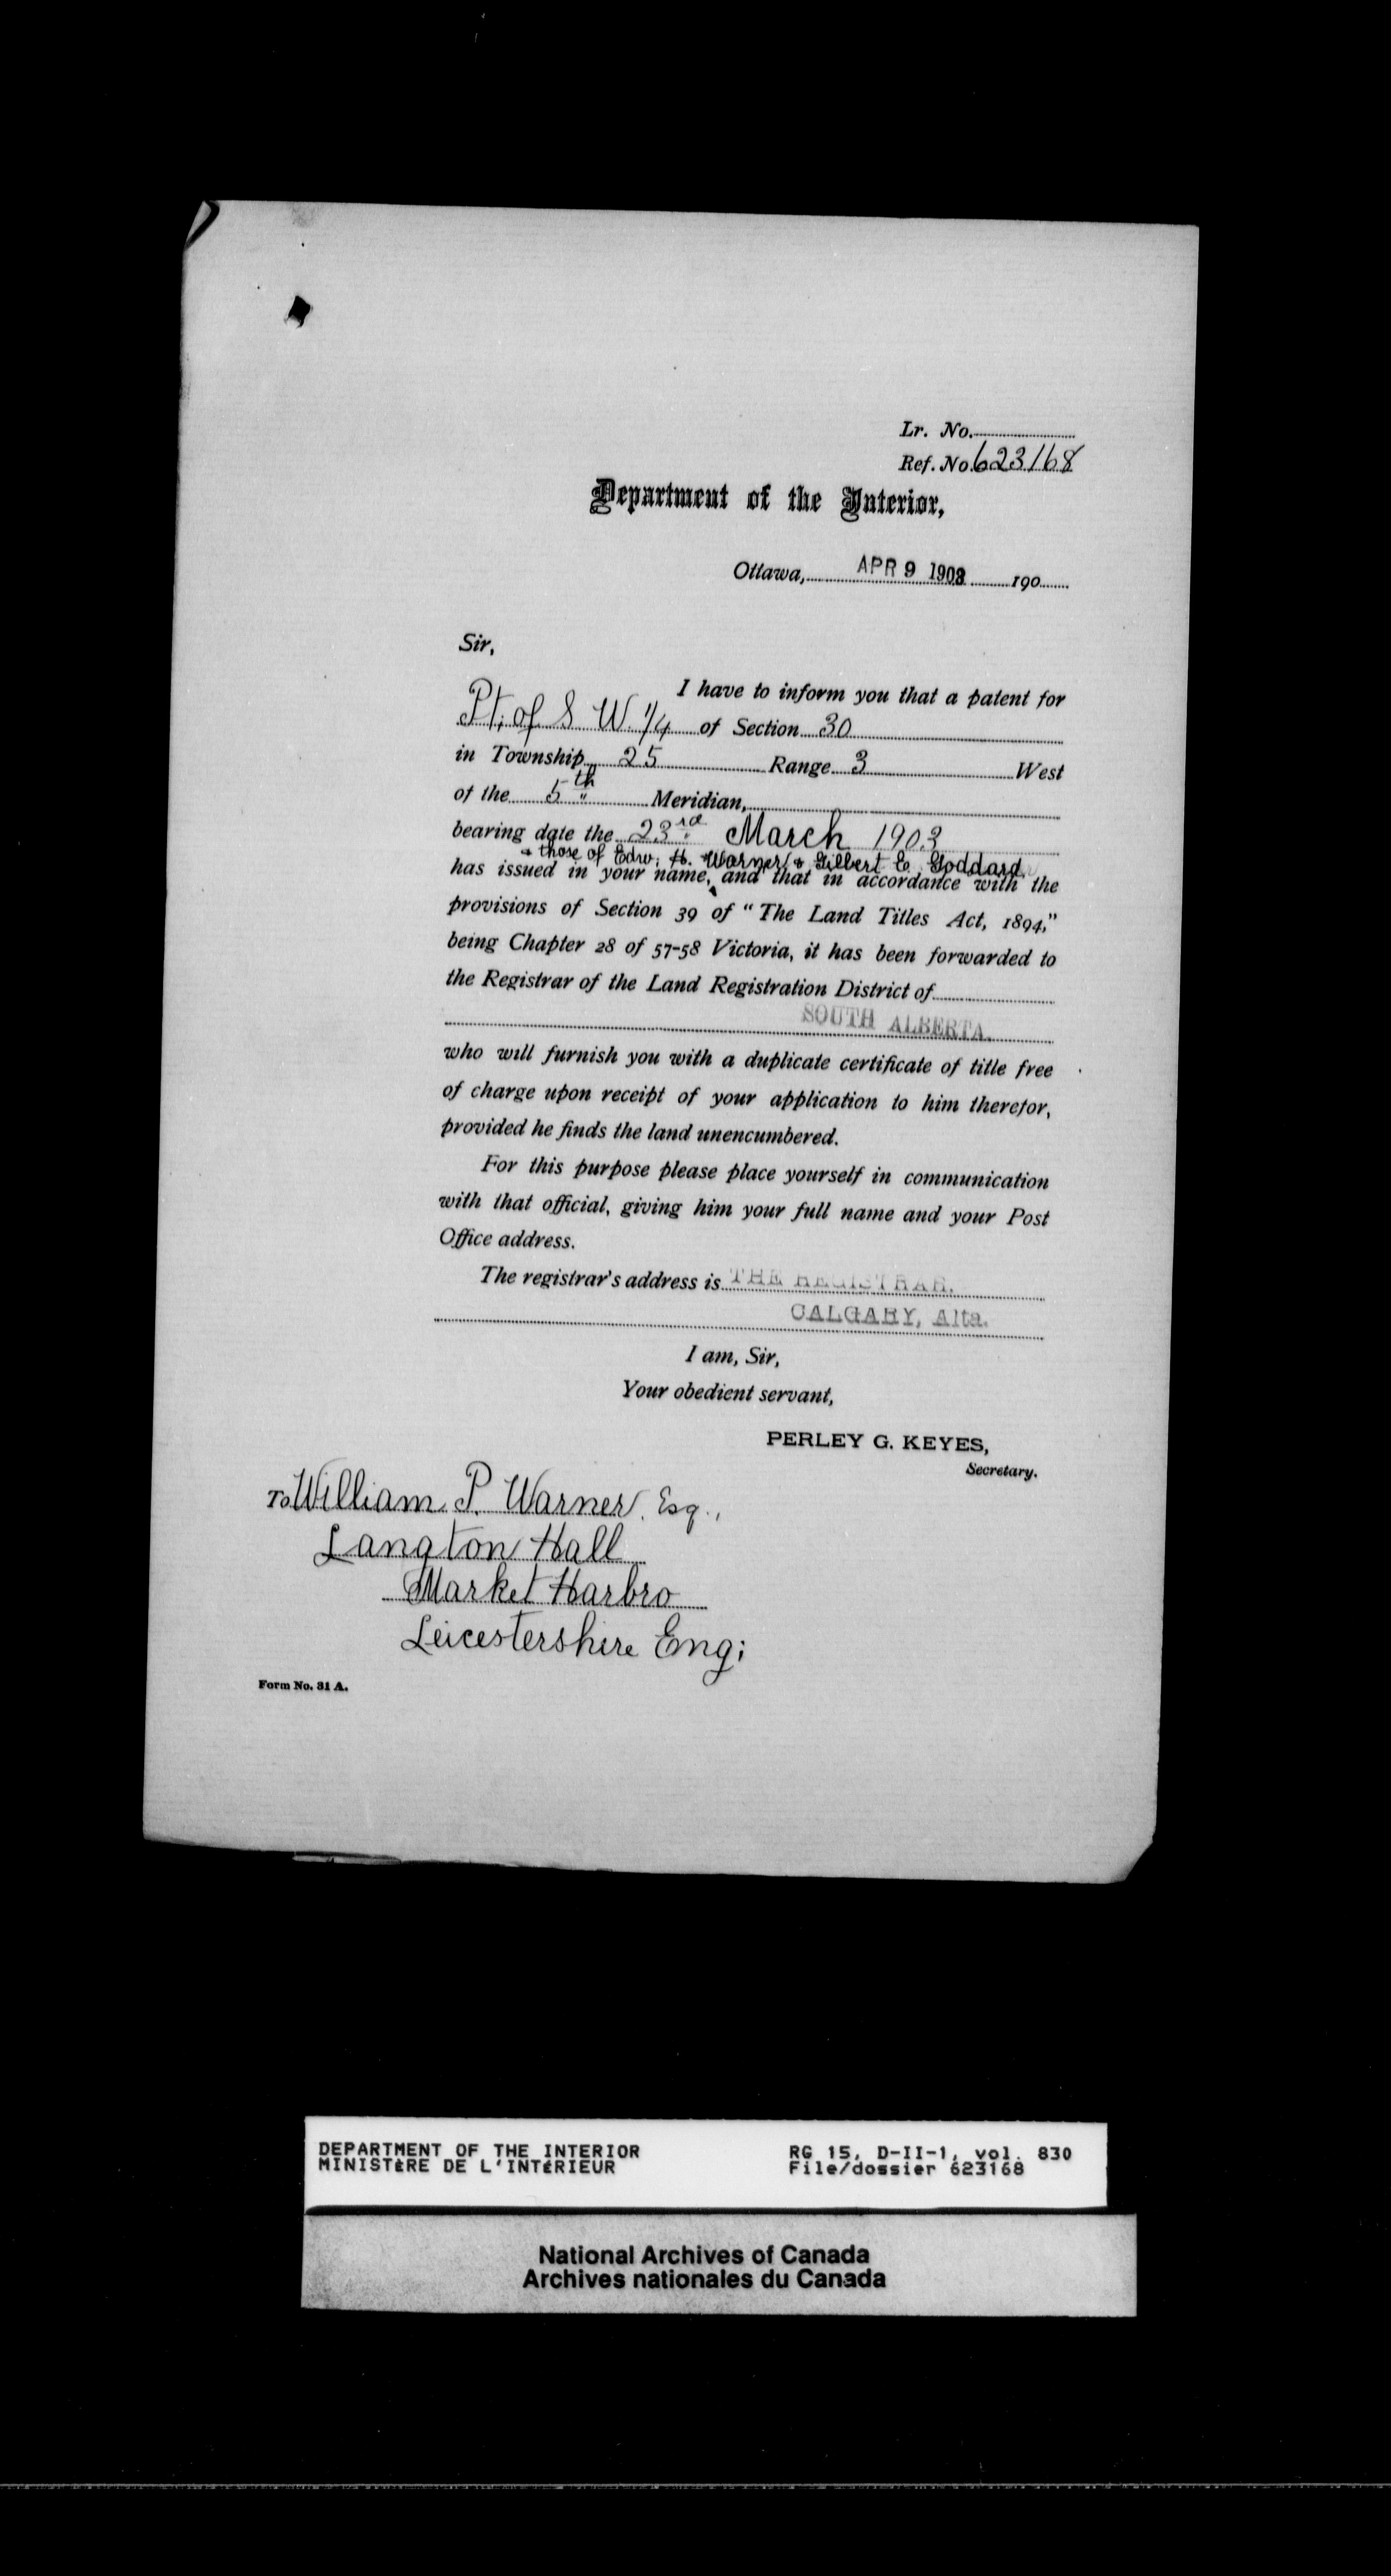 Lr. No.
Ref. No. 623168
Department of the Interior,
Ottawa, APR 9 1903 190
Sir,
I have to inform you that a patent for
Pt. of S W. 1/4 of Section 30
in Township 25 Range 3 West
of the 5th Meridian,
bearing date the 23rd March 1903
& those of Edw. H. Warner & Gilbert E. Goddard
has issued in your name, and that in accordance with the
provisions of Section 39 of "The Land Titles Act, 1894,"
being Chapter 28 of 57-58 Victoria, it has been forwarded to
the Registrar of the Land Registration District of
SOUTH ALBERTA.
who will furnish you with a duplicate certificate of title free
of charge upon receipt of your application to him therefor,
provided he finds the land unencumbered.
For this purpose please place yourself in communication
with that official, giving him your full name and your Post
Office address.
The registrar's address is THE REGISTRAR.
CALGARY, Alta.
I am, Sir,
Your obedient servant,
PERLEY G. KEYES,
Secretary.
To William P. Warner, Esq.,
Langton Hall
Market Harbro
Leicestershire Eng;
Form No. 31 A.
DEPARTMENT OF THE INTERIOR RG 15, D-II-1, vol. 830
MINISTÈRE DE L'INTÉRIEUR File/dossier 623168
National Archives of Canada
Archives nationales du Canada